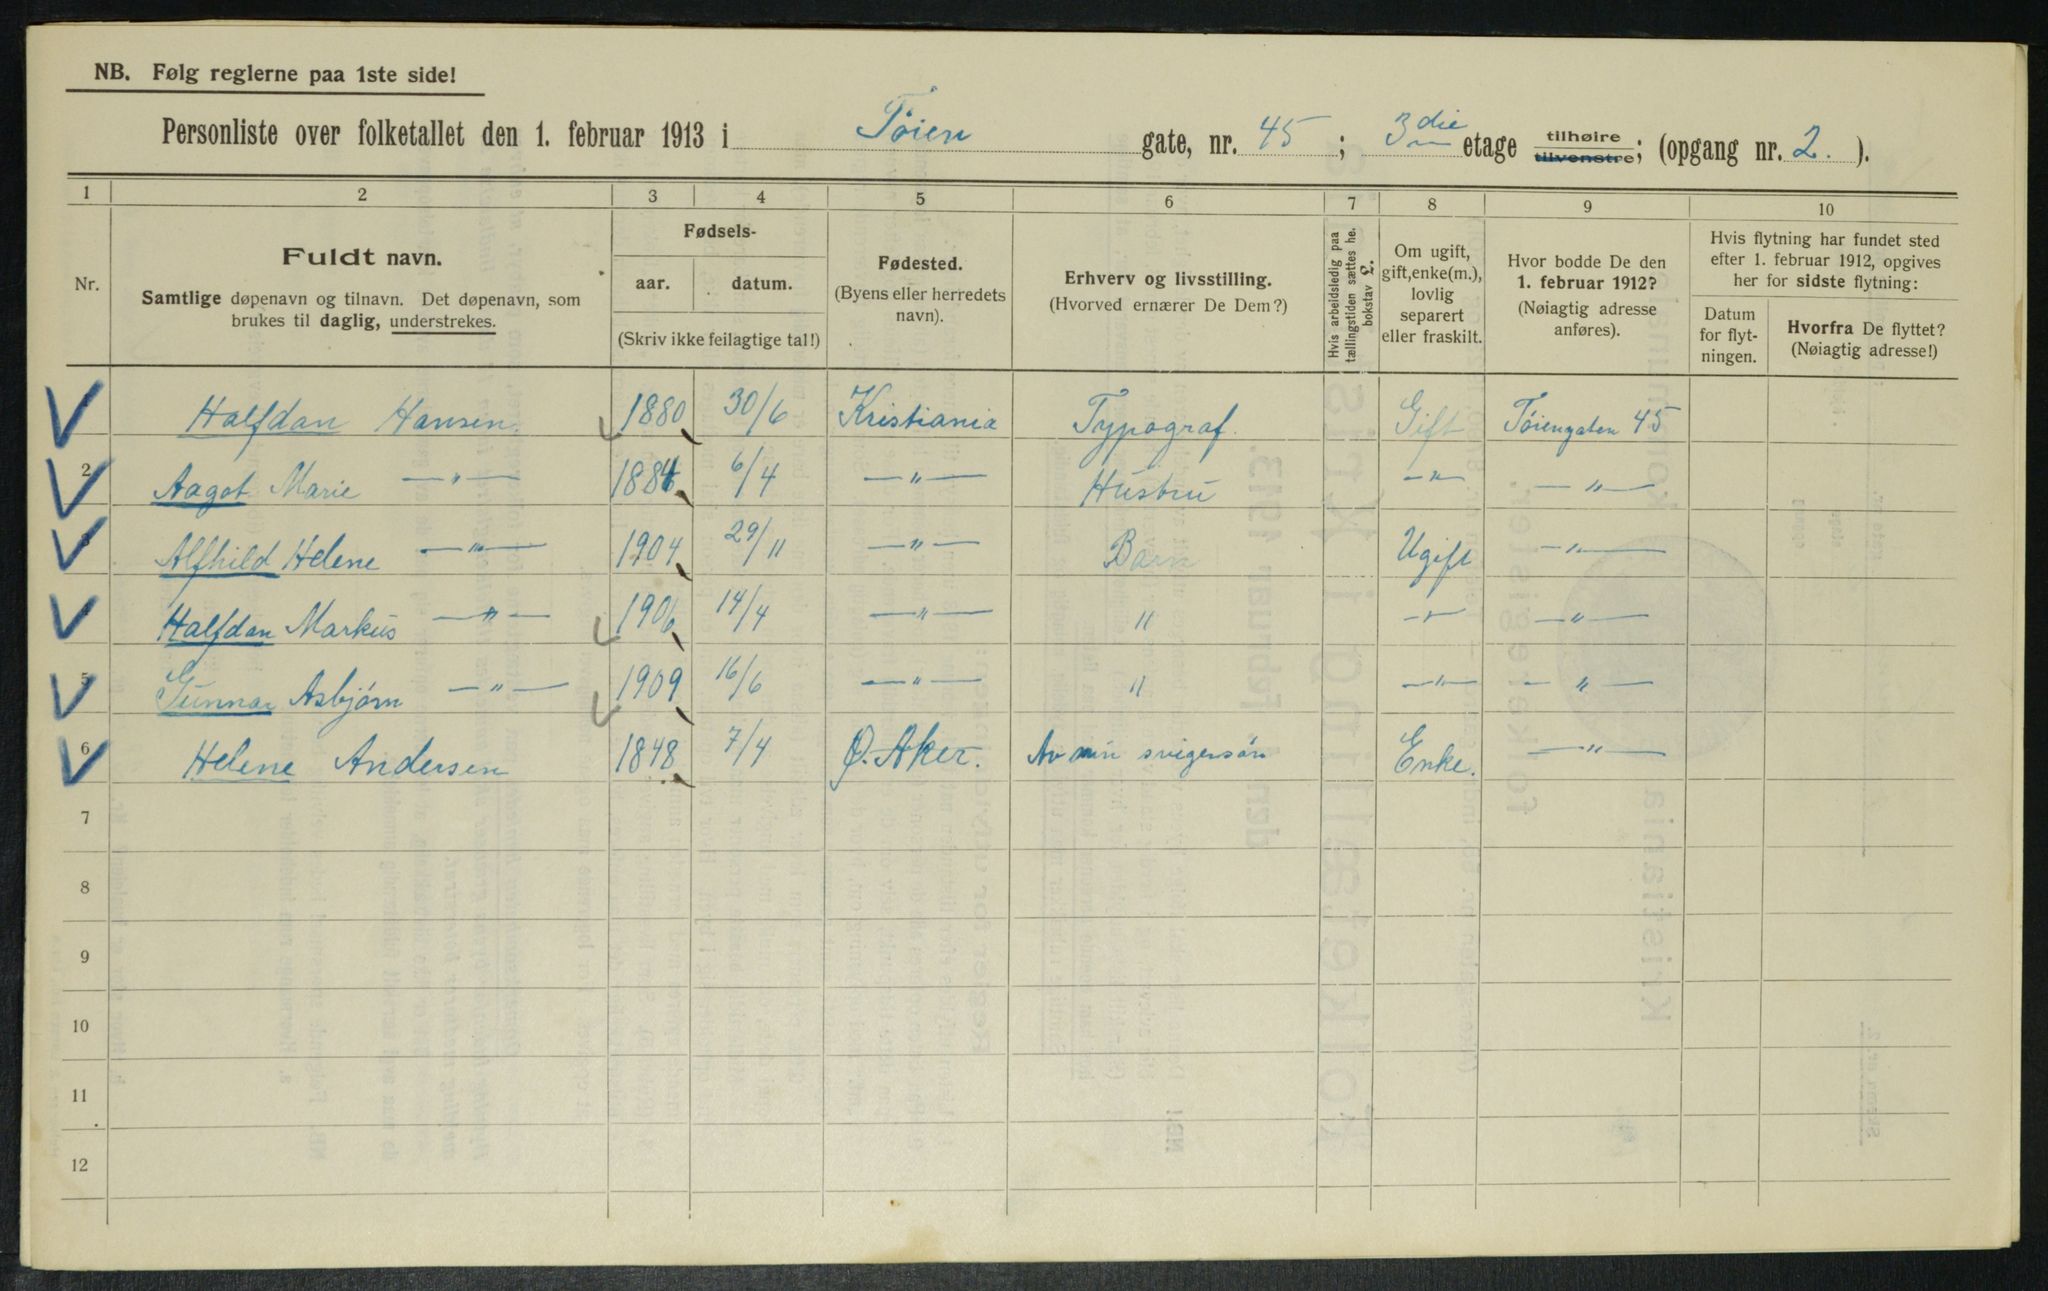 NB. Følg reglerne paa 1ste side!
Personliste over folketallet den 1. februar 1913 i Tøien gate, nr. 45 ; 3die etage tilhøire tilvenstre; (opgang nr. 2. ).
1 2 3 4 5 6 7 8 9 10
Nr.
Fuldt navn.
Samtlige døpenavn og tilnavn. Det døpenavn, som
brukes til daglig, understrekes.
Fødsels-
aar. datum.
(Skriv ikke feilagtige tal!)
Fødested.
(Byens eller herredets
navn).
Erhverv og livsstilling.
(Hvorved ernærer De Dem?)
Hvis arbeidsledig paa
tællingstiden sættes he.
bokstav £.
Om ugift,
gift, enke(m.),
lovlig
separert
eller fraskilt.
Hvor bodde De den
1. februar 1912?
(Nøiagtig adresse
anføres).
Hvis flytning har fundet sted
efter 1. februar 1912, opgives
her for sidste flytning:
Datum
for flyt-
ningen.
Hvorfra De flyttet?
(Nøiagtig adresse!)
Halfdan Hansen. 1880 30/6 Kristiania Typograf. Gift Tøiengaten 45
2 Aagot Marie —"— 1884 6/4 —"— Hustru —"— —"—
3 Alfhild Helene —"— 1904 29/11 —"— Barn Ugift —"—
4 Halfdan Markus —"— 1906 14/4 —"— " —"— —"—
5 Gunnar Asbjørn —"— 1909 16/6 —"— " —"— —"—
6 Helene Andersen 1848 7/4 Ø. Aker. Av min svigersøn Enke. —"—
7
8
9
10
11
12